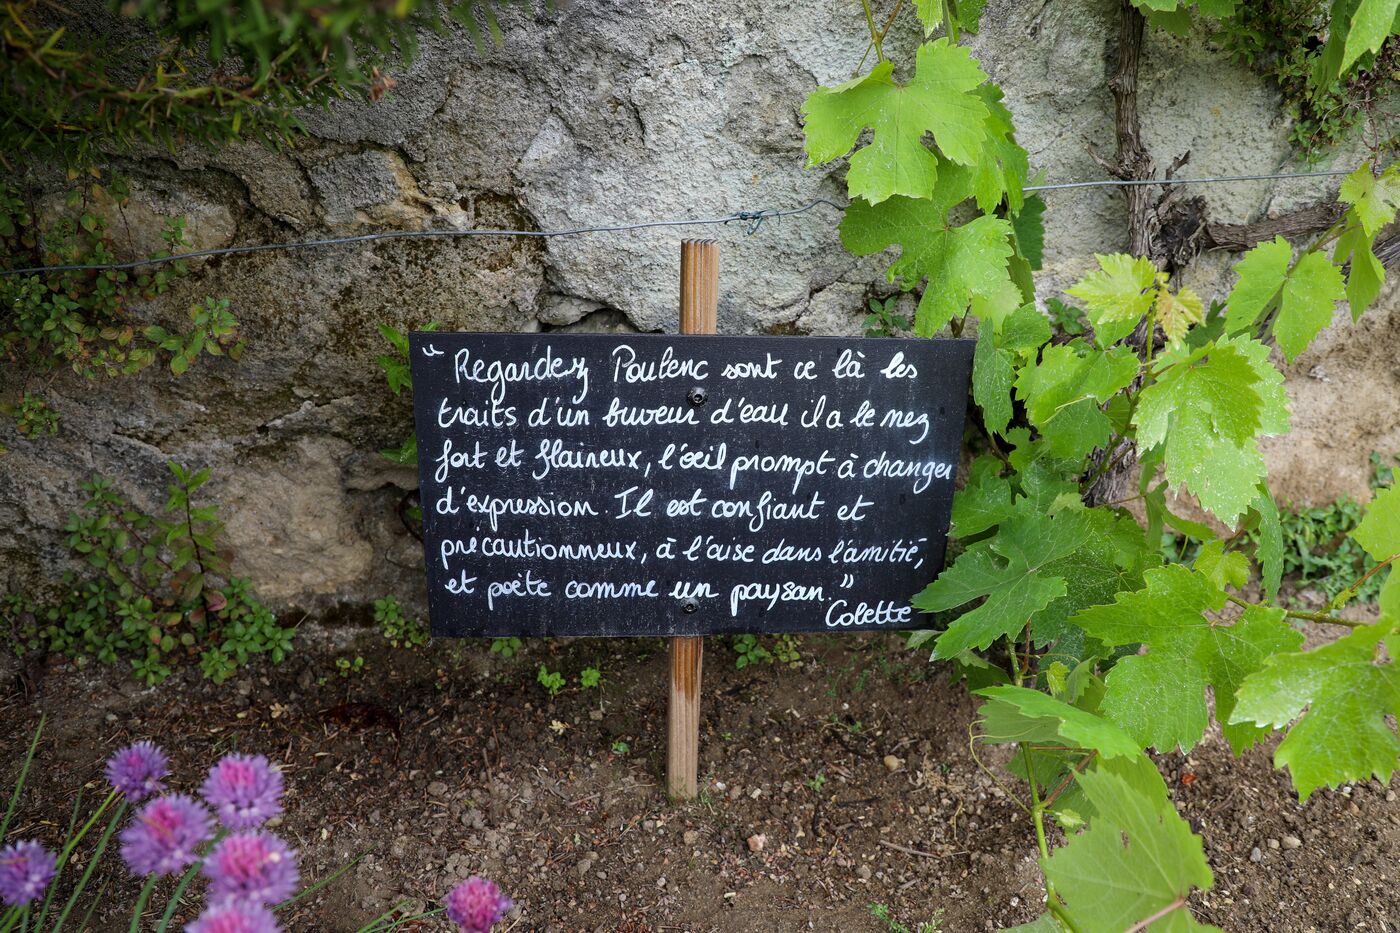 “ Regardez Poulenc sont ce là les
traits d'un buveur d'eau il a le nez
fort et flaireux, l'œil prompt à changer
d'expression. Il est confiant et
précautionneux, à l'aise dans l'amitié,
et poète comme un paysan.”
Colette